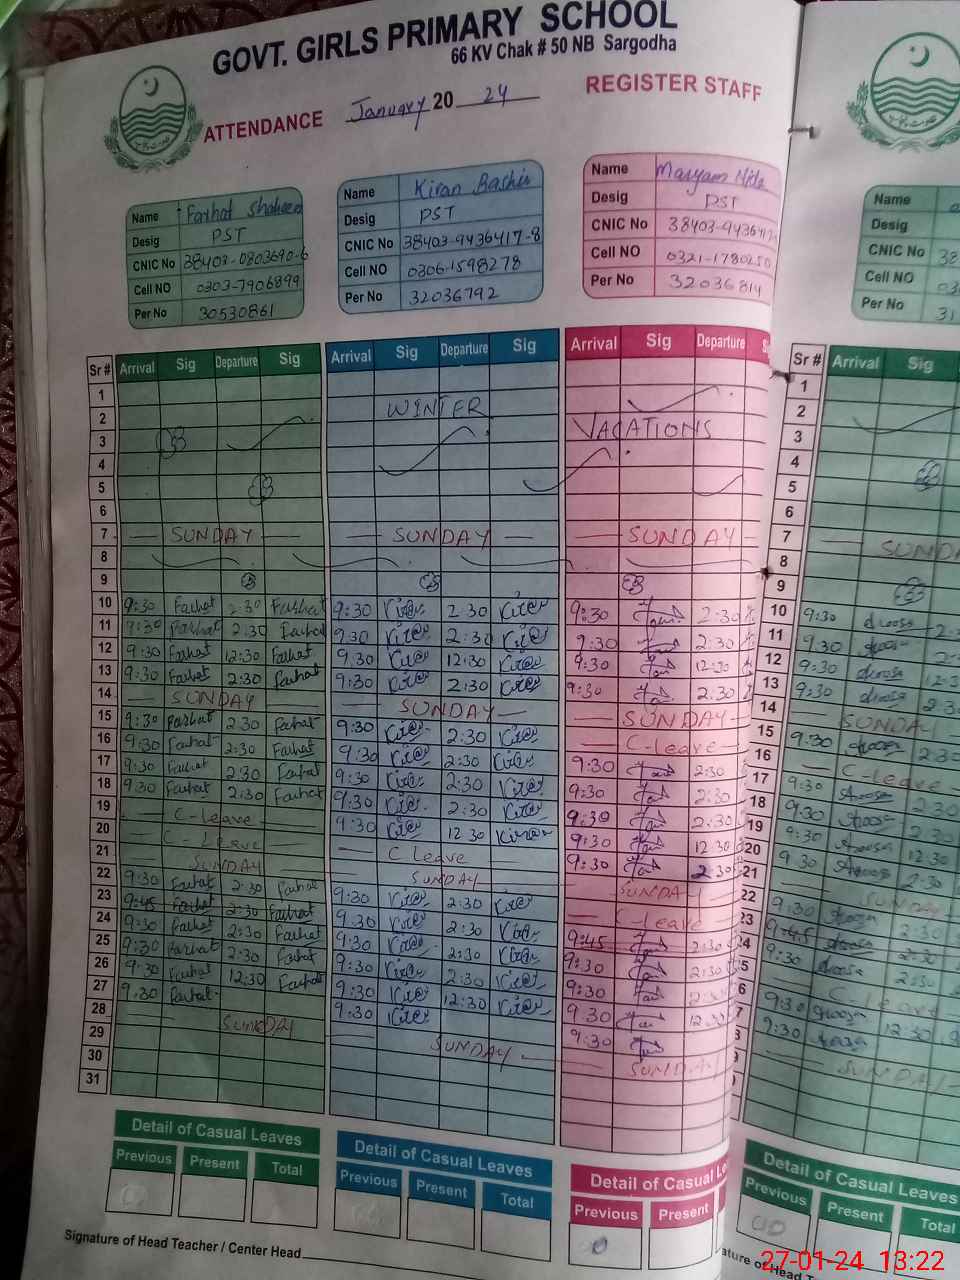 GOVT. GIRLS PRIMARY SCHOOL
66 KV Chak # 50 NB Sargodha
ATTENDANCE January 20 24 REGISTER STAFF
Name Farhat Shaheen
Desig PST
CNIC No 38403-0803690-6
Cell NO 0303-7906899
Per No 30530861
Name Kiran Bashir
Desig PST
CNIC No 38403-9436417-8
Cell NO 0306-1598278
Per No 32036792
Name Maryam
Desig PST
CNIC No 38403-9436417-
Cell NO 0321-1780250
Per No 32036814
Name
Desig
CNIC No 38
Cell NO 03
Per No 31
Sr # Arrival Sig Departure Sig Arrival Sig Departure Sig Arrival Sig Departure Sr # Arrival Sig
1 1
2 WINTER 2
3 VACATIONS 3
4 4
5 5
6 6
7 SUNDAY SUNDAY SUNDAY 7
8 8
9 9
10 9:30 Farhat 2:30 Farhat 9:30 Kiran 2:30 Kiran 9:30 2:30 10 9:30
11 9:30 Farhat 2:30 Farhat 9:30 Kiran 2:30 Kiran 9:30 2:30 11 9:30
12 9:30 Farhat 12:30 Farhat 9:30 Kiran 12:30 Kiran 9:30 12:30 12 9:30
13 9:30 Farhat 2:30 Farhat 9:30 Kiran 2:30 Kiran 9:30 2:30 13 9:30
14 SUNDAY SUNDAY SUNDAY 14 SUNDAY
15 9:30 Farhat 2:30 Farhat 9:30 Kiran 2:30 Kiran C-Leave 15 9:30 2:30
16 9:30 Farhat 2:30 Farhat 9:30 Kiran 2:30 Kiran 9:30 2:30 16 C-Leave
17 9:30 Farhat 2:30 Farhat 9:30 Kiran 2:30 Kiran 9:30 2:30 17 9:30 2:30
18 9:30 Farhat 2:30 Farhat 9:30 Kiran 2:30 Kiran 9:30 2:30 18 9:30 2:30
19 C-Leave 9:30 Kiran 12:30 Kiran 9:30 12:30 19 9:30 12:30
20 C Leave C Leave 9:30 2:30 20 9:30 2:30
21 SUNDAY SUNDAY SUNDAY 21 SUNDAY
22 9:30 Farhat 2:30 Farhat 9:30 Kiran 2:30 Kiran C-Leave 22 9:30 2:30
23 9:45 Farhat 2:30 Farhat 9:30 Kiran 2:30 Kiran 9:45 2:30 23 9:45
24 9:30 Farhat 2:30 Farhat 9:30 Kiran 2:30 Kiran 9:30 2:30 9:30 2:30
25 9:30 Farhat 2:30 Farhat 9:30 Kiran 2:30 Kiran 9:30 C-Leave
26 9:30 Farhat 12:30 Farhat 9:30 Kiran 12:30 Kiran 9:30 12:30 9:30 12:30
27 9:30 Farhat 9:30 Kiran 9:30 9:30
28 SUNDAY SUNDAY SUNDAY SUNDAY
29
30
31
Detail of Casual Leaves
Previous Present Total
Detail of Casual Leaves
Previous Present Total
Detail of Casual Le
Previous Present
0
Detail of Casual Leaves
Previous Present Total
00
Signature of Head Teacher / Center Head
ature of Head T
27-01-24 13:22